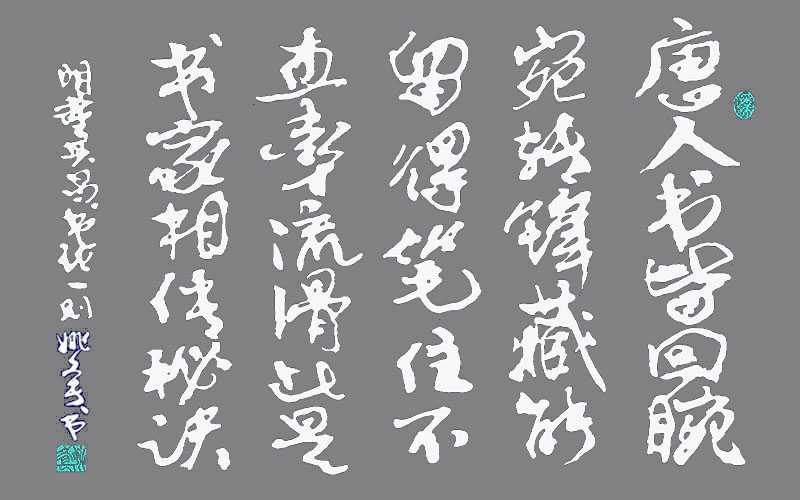 唐人书皆回腕
宛转锋藏能
留得笔住不
直率流滑此是
书家相传秘诀
明董其昌书论一则